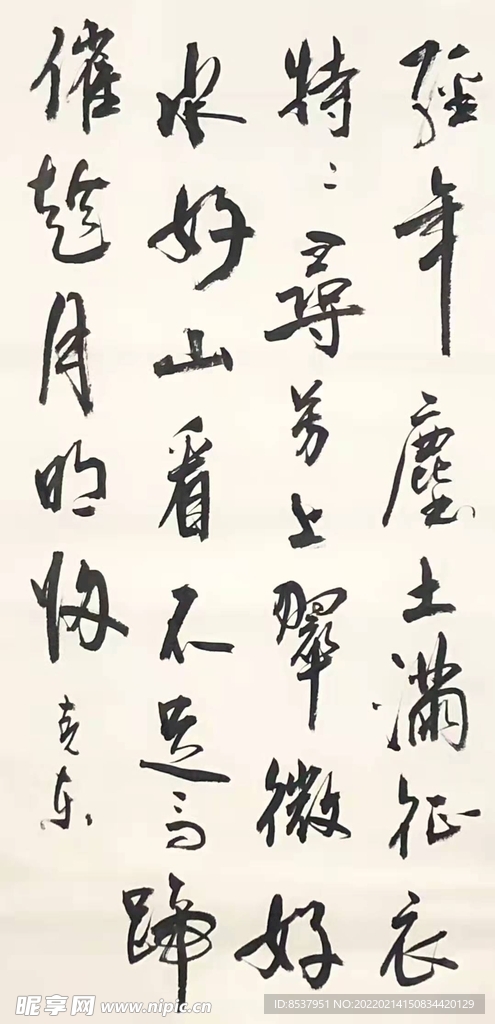 經年塵土滿征衣
特〻尋芳上翠微好
水好山看不足马蹄
催趁月明归
克东
昵享网 www.nipic.cn
ID:8537951 NO:20220214150834420129